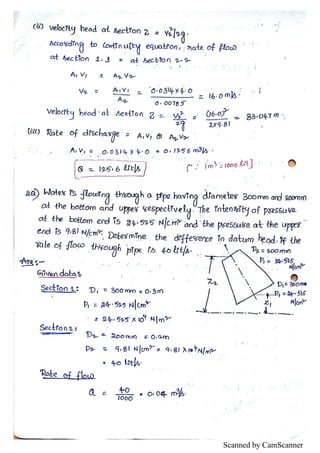 (ii) velocity head at section 2 = V₂²/2g.
According to continuity equation, rate of flow
at section 1-1 = at section 2-2
A₁ V₁ = A₂ V₂
V₂ = A₁V₁ / A₂ = 0.0314 x 4.0 / 0.00785 = 16.0 m/s.
Velocity head at section 2 = V₂²/2g = (16.0)²/2x9.81 = 83.047m.
(iii) Rate of discharge = A₁V₁ or A₂V₂
A₁V₁ = 0.0314 x 4.0 = 0.1256 m³/s.
Q = 125.6 lit/s [∵ 1m³ = 1000 lit]
Water is flowing through a pipe having diameter 300mm and 200mm
at the bottom and upper respectively. The intensity of pressure
at the bottom end is 24.525 N/cm² and the pressure at the upper
end is 9.81 N/cm². Determine the difference in datum head if the
rate of flow through pipe is 40 lit/s.
Ans:-
Given data:
D₂ = 200mm
P₂ = 24.525 N/cm²
Section 1: D₁ = 300mm = 0.3m
Z₂
D₁ = 300mm
P₁ = 24.525 N/cm²
P₁ = 24.525 N/cm²
Z₁
= 24.525 x 10⁴ N/m²
Section 2:
D₂ = 200mm = 0.2m
P₂ = 9.81 N/cm² = 9.81 x 10⁴ N/m²
= 40 lit/s
Rate of flow
Q = 40/1000 = 0.04 m³/s
Scanned by CamScanner